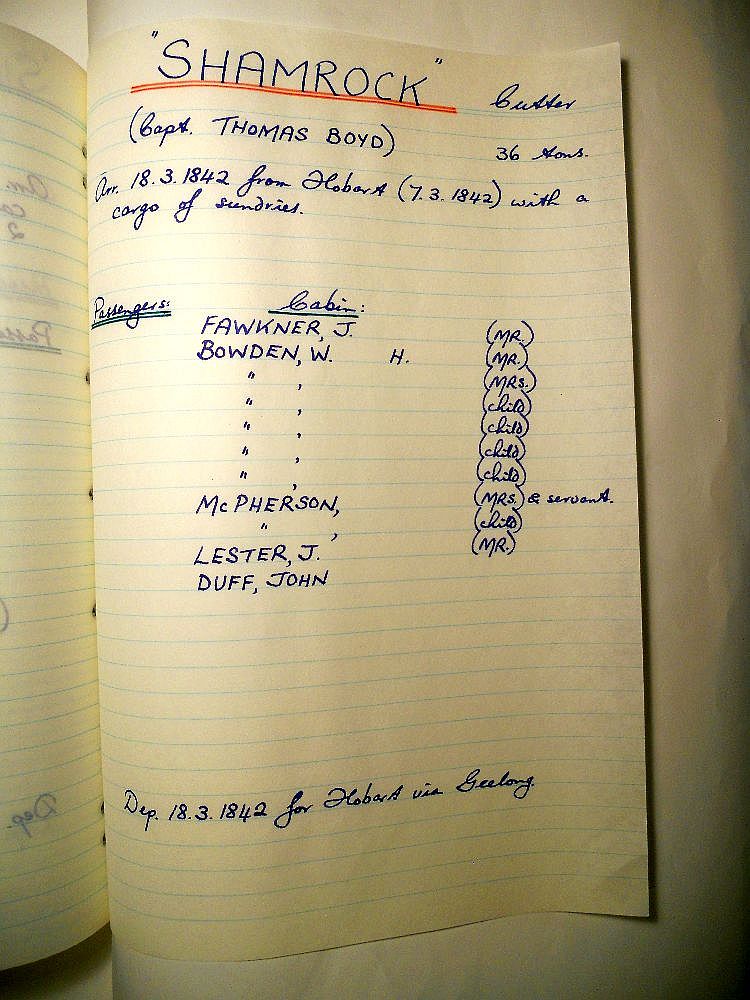 "SHAMROCK" Cutter
(Capt. THOMAS BOYD) 36 tons.
Arr. 18.3.1842 from Hobart (7.3.1842) with a
cargo of sundries.
Passengers: Cabin:
FAWKNER, J. (MR.)
BOWDEN, W. H. (MR.)
" , (MRS.)
" , (child)
" , (child)
" , (child)
" , (child)
McPHERSON, (MRS.) & servant.
" , (child)
LESTER, J. (MR.)
DUFF, JOHN
Dep. 18.3.1842 for Hobart via Geelong.